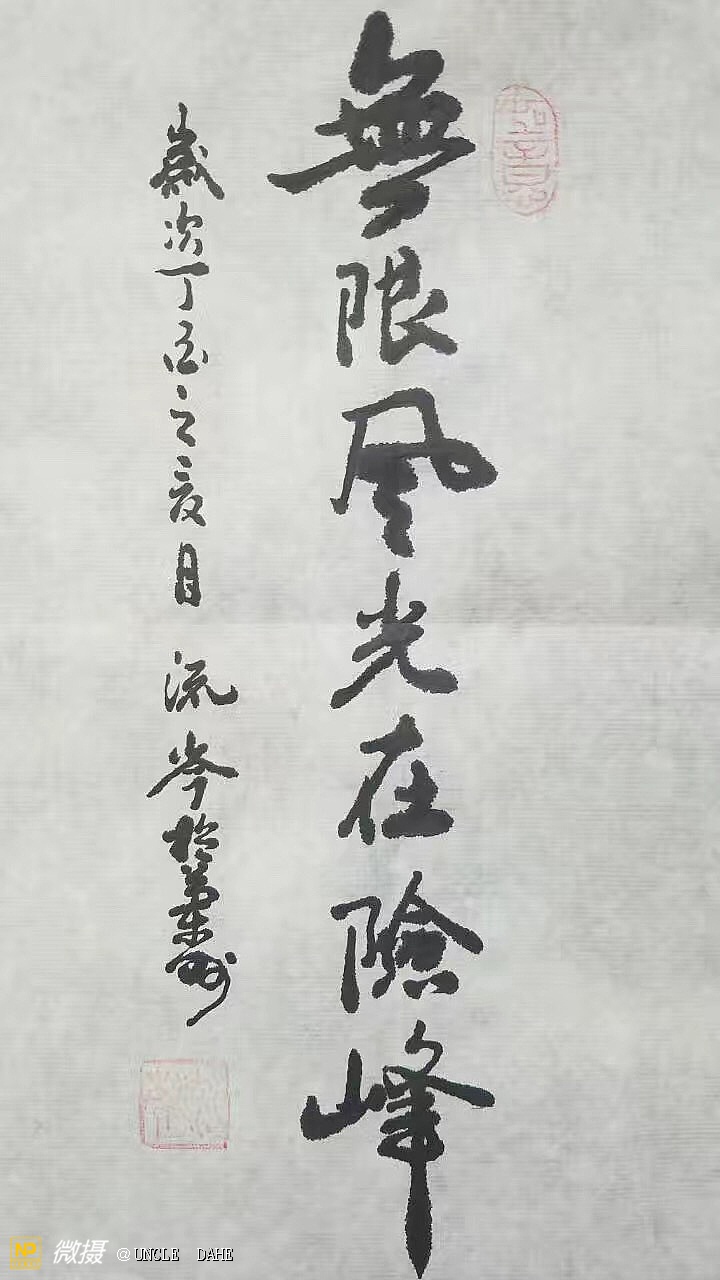 無限風光在險峰
歲次丁酉之夏月 流岑於蘭州
微摄 @UNCLE DAHE